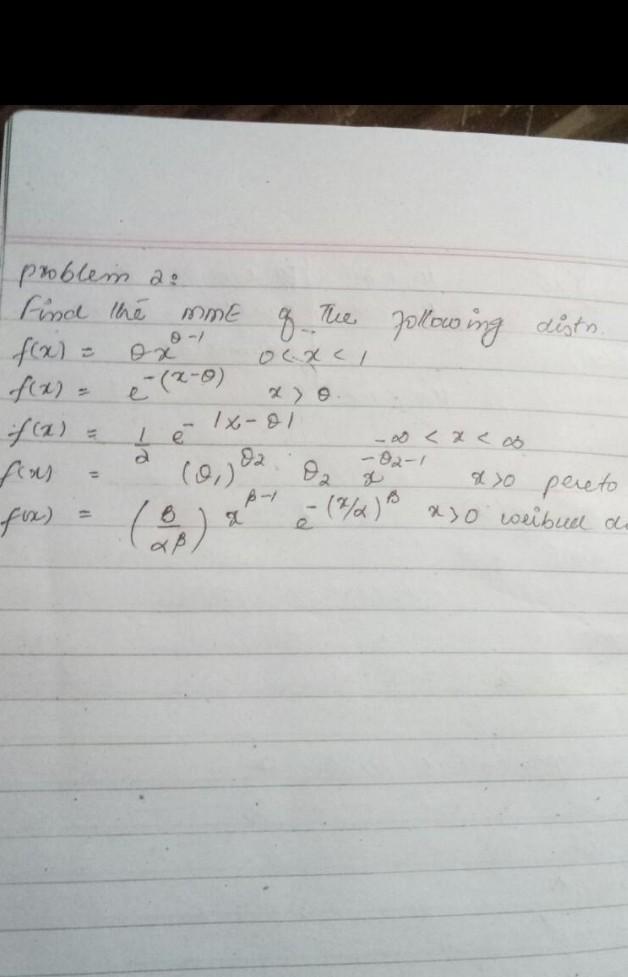 problem 2:
Find the MME of The following distn.
f(x) = θx^(θ-1) 0<x<1
f(x) = e^-(x-θ) x>θ.
f(x) = 1/2 e^-|x-θ| -∞<x<∞
f(x) = (θ₁)^θ₂ θ₂ x^(-θ₂-1) x>0 pereto
f(x) = (β/αβ) x^(β-1) e^-(x/α)^β x>0 weibull